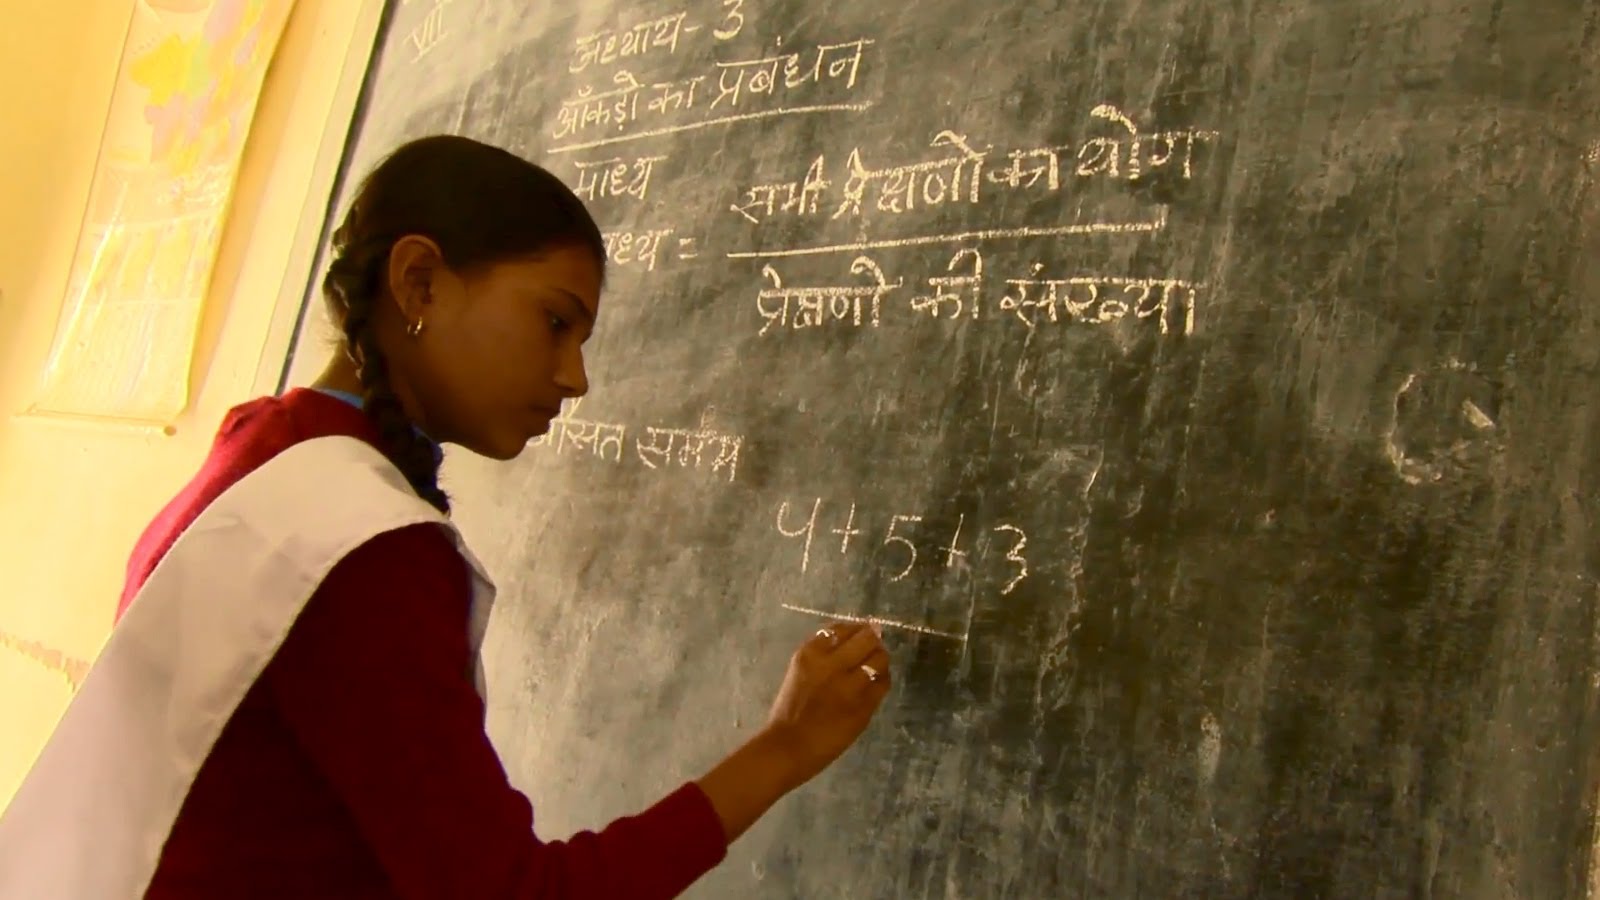 VII
अध्याय - 3
आँकड़ो का प्रबंधन
माध्य
ध्य = सभी प्रेक्षणों का योग
प्रेक्षणों की संख्या
औसत समय
4+5+3